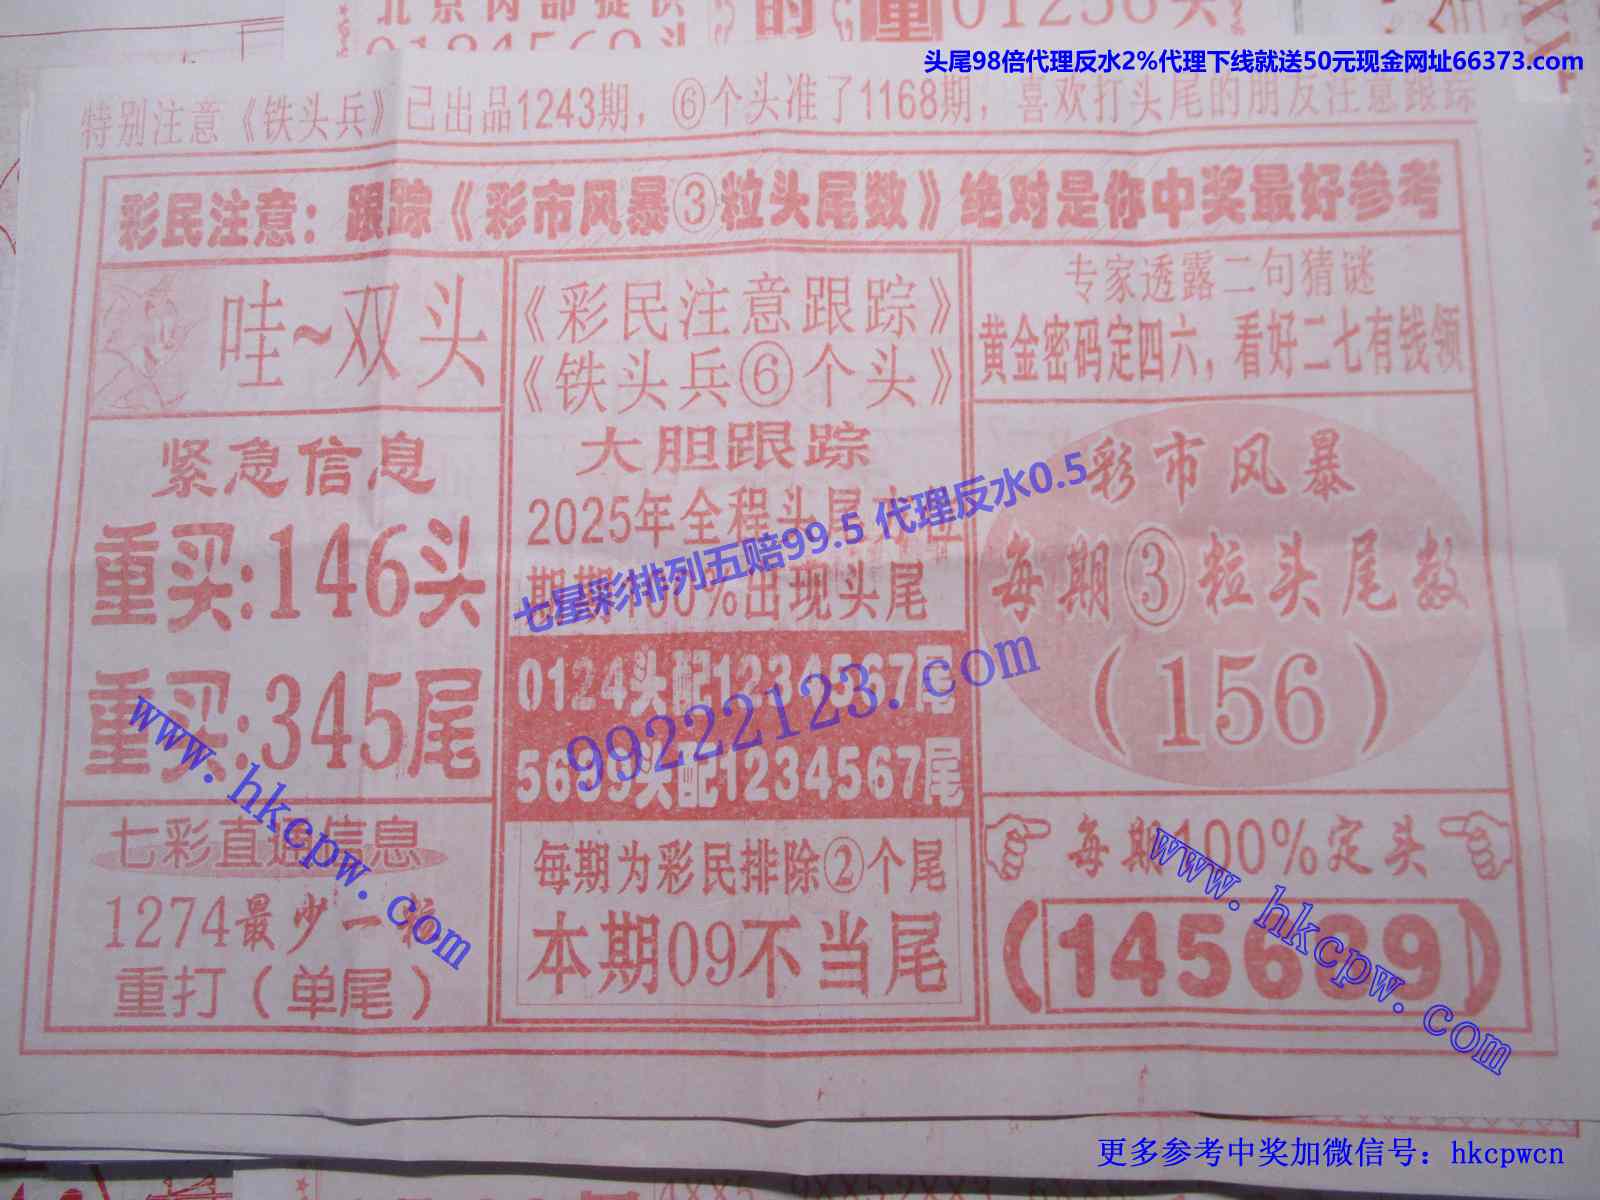 北京内部提供
的
重
01256头
头尾98倍代理反水2%代理下线就送50元现金网址66373.com
特别注意《铁头兵》已出品1243期，⑥个头准了1168期，喜欢打头尾的朋友注意跟踪
彩民注意：跟踪《彩市风暴③粒头尾数》绝对是你中奖最好参考
哇~双头
紧急信息
重买:146头
重买:345尾
七彩直通信息
1274最少一粒
重打（单尾）
《彩民注意跟踪》
《铁头兵⑥个头》
大胆跟踪
2025年全程头尾
期期100%出现头尾
七星彩排列五赔99.5 代理反水0.5
0124头配1234567尾
5699头配1234567尾
99222123.com
每期为彩民排除②个尾
本期09不当尾
专家透露二句猜谜
黄金密码定四六，看好二七有钱领
彩市风暴
每期③粒头尾数
（156）
每期100%定头
（145689）
www.hkcpw.com
www.hkcpw.com
更多参考中奖加微信号：hkcpwcn